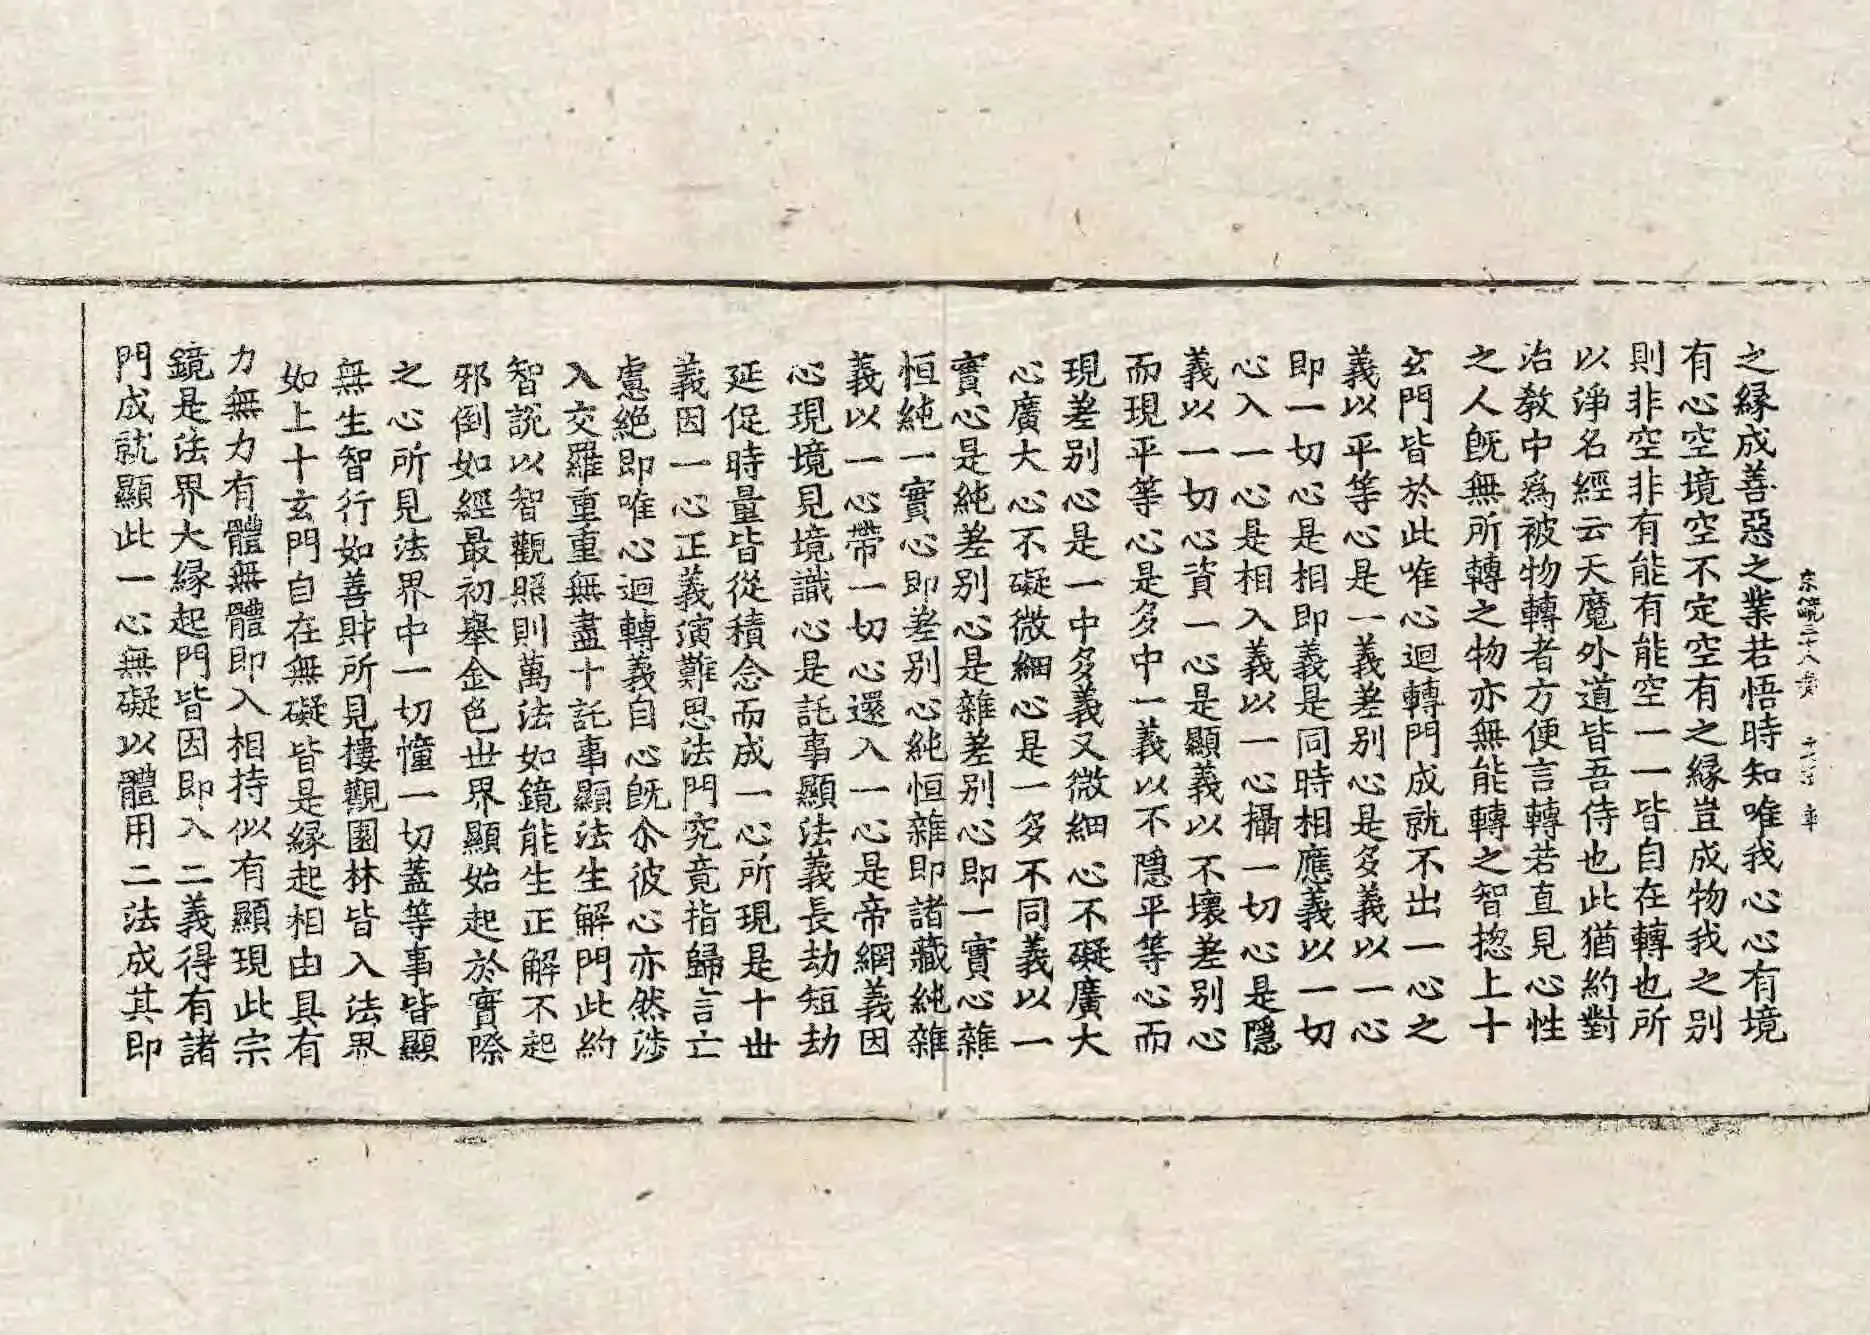 之縁成善惡之業若悟時知唯我心心有境
有心空境空不定空有之縁豈成物我之別
則非空非有能有能空一一皆自在轉也所
以淨名經云天魔外道皆吾侍也此猶約對
治教中爲被物轉者方便言轉若直見心性
之人旣無所轉之物亦無能轉之智揔上十
玄門皆於此唯心迴轉門成就不出一心之
義以平等心是一義差別心是多義以一心
即一切心是相即義是同時相應義以一切
心入一心是相入義以一心攝一切心是隱
義以一切心資一心是顯義以不壞差別心
而現平等心是多中一義以不隱平等心而
現差別心是一中多義又微細心不礙廣大
心廣大心不礙微細心是一多不同義以一
實心是純差別心是雜差別心即一實心雜
恒純一實心即差別心純恒雜即諸藏純雜
義以一心帶一切心還入一心是帝網義因
心現境見境識心是託事顯法義長劫短劫
延促時量皆從積念而成一心所現是十世
義因一心正義演難思法門究竟指歸言亡
慮絶即唯心迴轉義自心旣尒彼心亦然涉
入交羅重重無盡十託事顯法生解門此約
智說以智觀照則萬法如鏡能生正解不起
邪倒如經最初舉金色世界顯始起於實際
之心所見法界中一切憧一切蓋等事皆顯
無生智行如善財所見樓觀園林皆入法界
如上十玄門自在無礙皆是縁起相由具有
力無力有體無體即入相持似有顯現此宗
鏡是法界大縁起門皆因即入二義得有諸
門成就顯此一心無礙以體用二法成其即